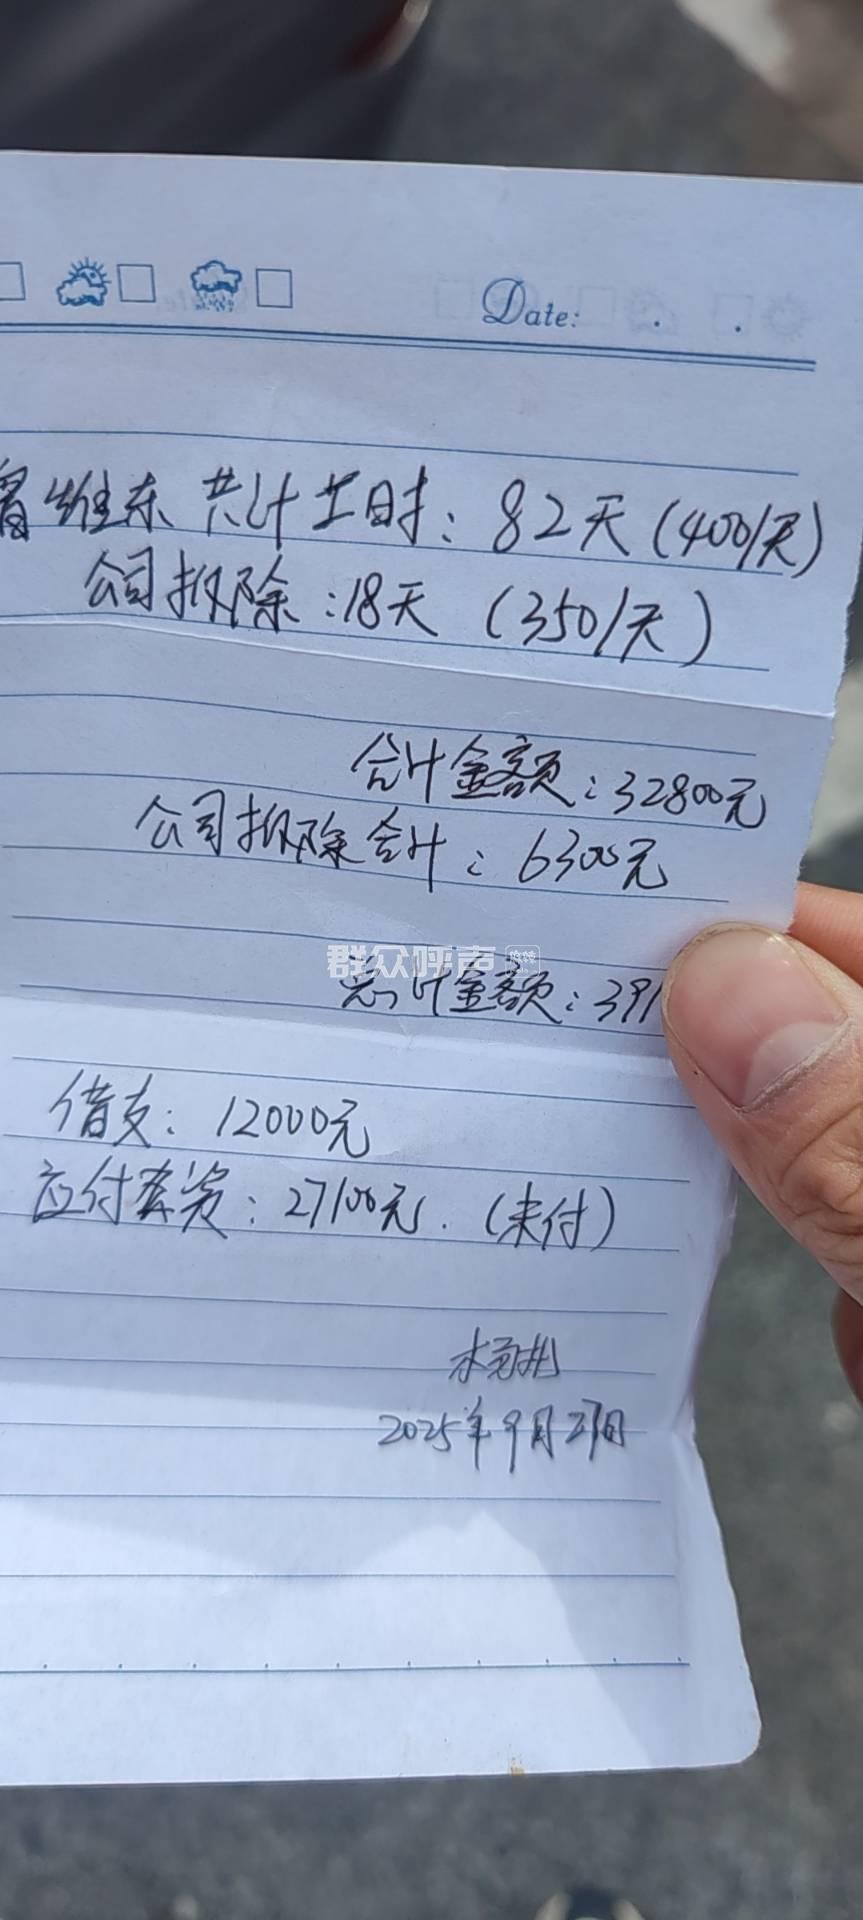 Date:
维东 共计工时：82天（400/天）
公司扣除：18天（350/天）
合计金额：32800元
公司扣除合计：6300元
群众呼声
总计金额：391
借支：12000元
应付工资：27100元．（未付）
2025年9月